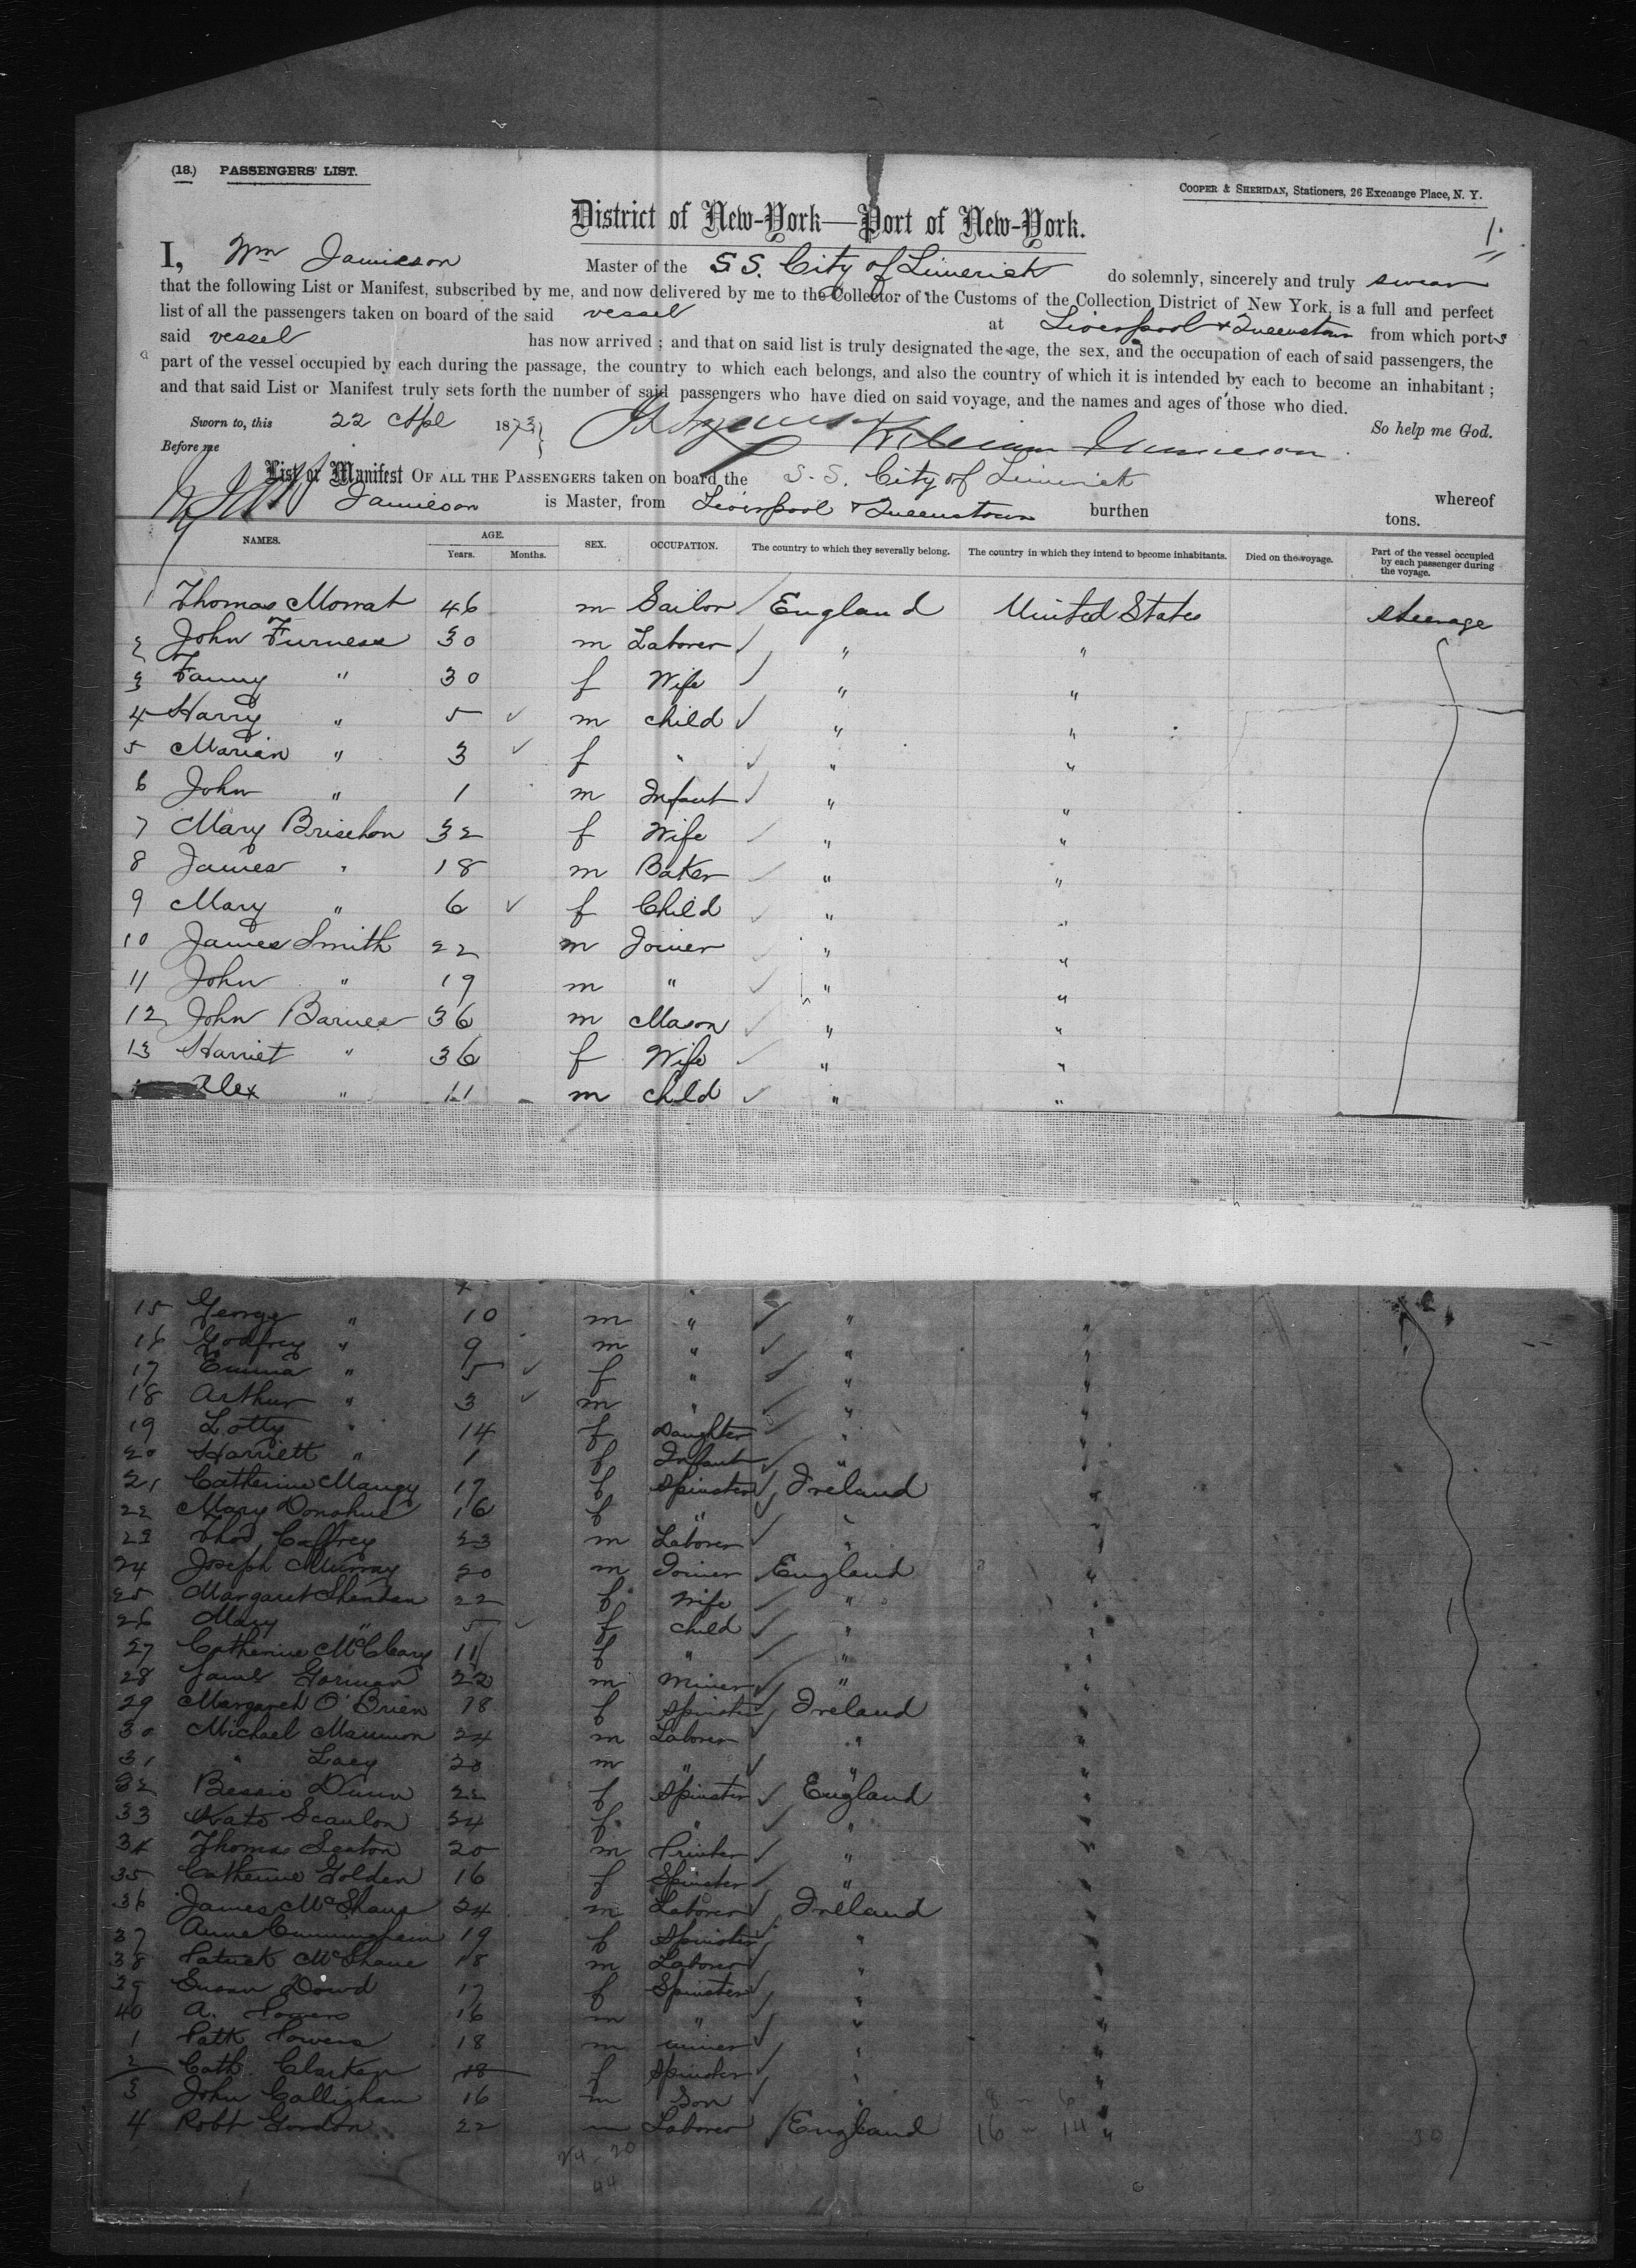 (18.) PASSENGERS' LIST.
COOPER & SHERIDAN, Stationers, 26 Exchange Place, N. Y.
District of New-York—Port of New-York.
1.
I, Wm Jamieson Master of the S.S. City of Limerick do solemnly, sincerely and truly swear
that the following List or Manifest, subscribed by me, and now delivered by me to the Collector of the Customs of the Collection District of New York, is a full and perfect
list of all the passengers taken on board of the said vessel at Liverpool & Queenstown from which ports
said vessel has now arrived ; and that on said list is truly designated the age, the sex, and the occupation of each of said passengers, the
part of the vessel occupied by each during the passage, the country to which each belongs, and also the country of which it is intended by each to become an inhabitant ;
and that said List or Manifest truly sets forth the number of said passengers who have died on said voyage, and the names and ages of those who died.
Sworn to, this 22 Apl 1873 William Jamieson So help me God.
Before me
List or Manifest OF ALL THE PASSENGERS taken on board the S.S. City of Limerick whereof
Jamieson is Master, from Liverpool & Queenstown burthen tons.
NAMES. AGE. Years. Months. SEX. OCCUPATION. The country to which they severally belong. The country in which they intend to become inhabitants. Died on the voyage. Part of the vessel occupied by each passenger during the voyage.
1 Thomas Morrat 46 m Sailor England United States steerage
2 John Furness 30 m Laborer " "
3 Fanny " 30 f Wife " "
4 Harry " 5 m child " "
5 Marian " 3 f " " "
6 John " 1 m Infant " "
7 Mary Briselon 32 f Wife " "
8 James " 18 m Baker " "
9 Mary " 6 f Child " "
10 James Smith 22 m Joiner " "
11 John " 19 m " " "
12 John Barnes 36 m Mason " "
13 Harriet " 36 f Wife " "
Alex " 11 m child " "
15 George " 10 m " " "
16 Godfrey " 9 m " " "
17 Emma " 5 f " " "
18 Arthur " 3 m " " "
19 Lotty " 14 f Daughter " "
20 Harriett " 1 f Infant " "
21 Catherine Mangy 17 f Spinster Ireland "
22 Mary Donohue 16 f " " "
23 Thos Caffrey 23 m Laborer " "
24 Joseph Murray 20 m Joiner England "
25 Margaret Sheridan 22 f Wife " "
26 Mary " 5 f child " "
27 Catherine McCleary 11 f " " "
28 James Gorman 22 m Miner " "
29 Margaret O'Brien 18 f Spinster Ireland "
30 Michael Mannion 24 m Laborer " "
31 " Lacy 20 m " " "
32 Bessie Dunn 22 f Spinster England "
33 Kate Scanlon 24 f " " "
34 Thomas Seaton 20 m Printer " "
35 Catherine Golden 16 f Spinster " "
36 James McShane 24 m Laborer Ireland "
37 Anne Cunningham 19 f Spinster " "
38 Patrick McShane 18 m Laborer " "
39 Susan Dowd 17 f Spinster " "
40 A. Powers 16 m " " "
1 Patk Powers 18 m miner " "
2 Cath. Clarken 18 f Spinster " "
3 John Callighan 16 m Son " "
4 Robt Gordon 22 m Laborer England "
8 6
16 14
24 20
44
30